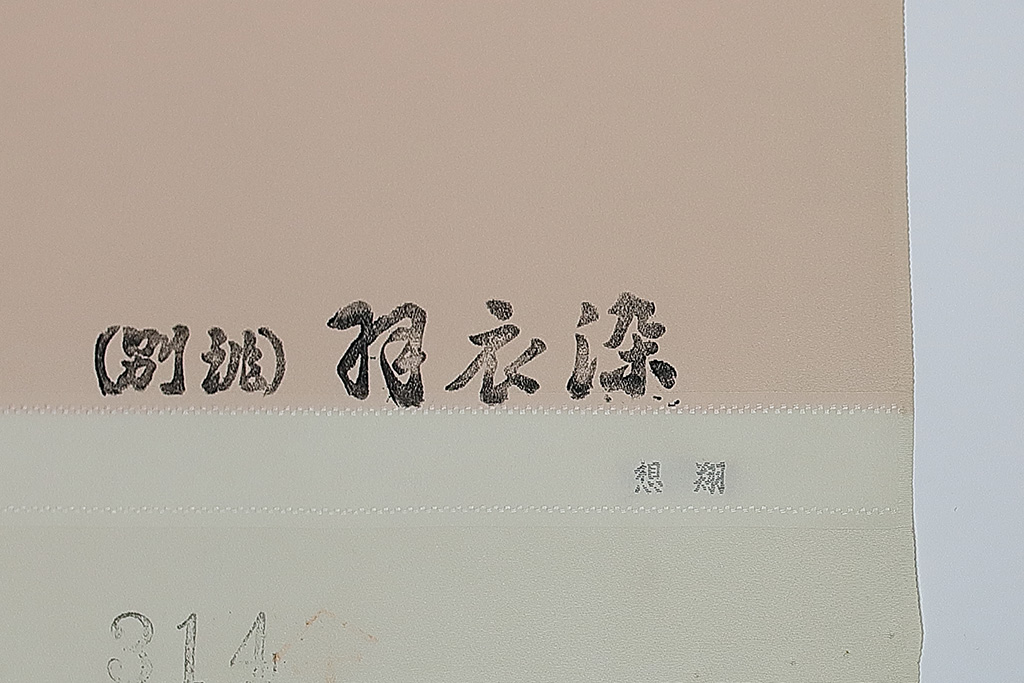 (別誂) 羽衣染
想 翔
314